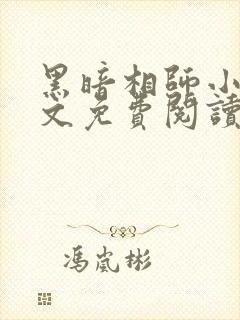 黑暗相師小
文免費閱讀
馮嵐彬